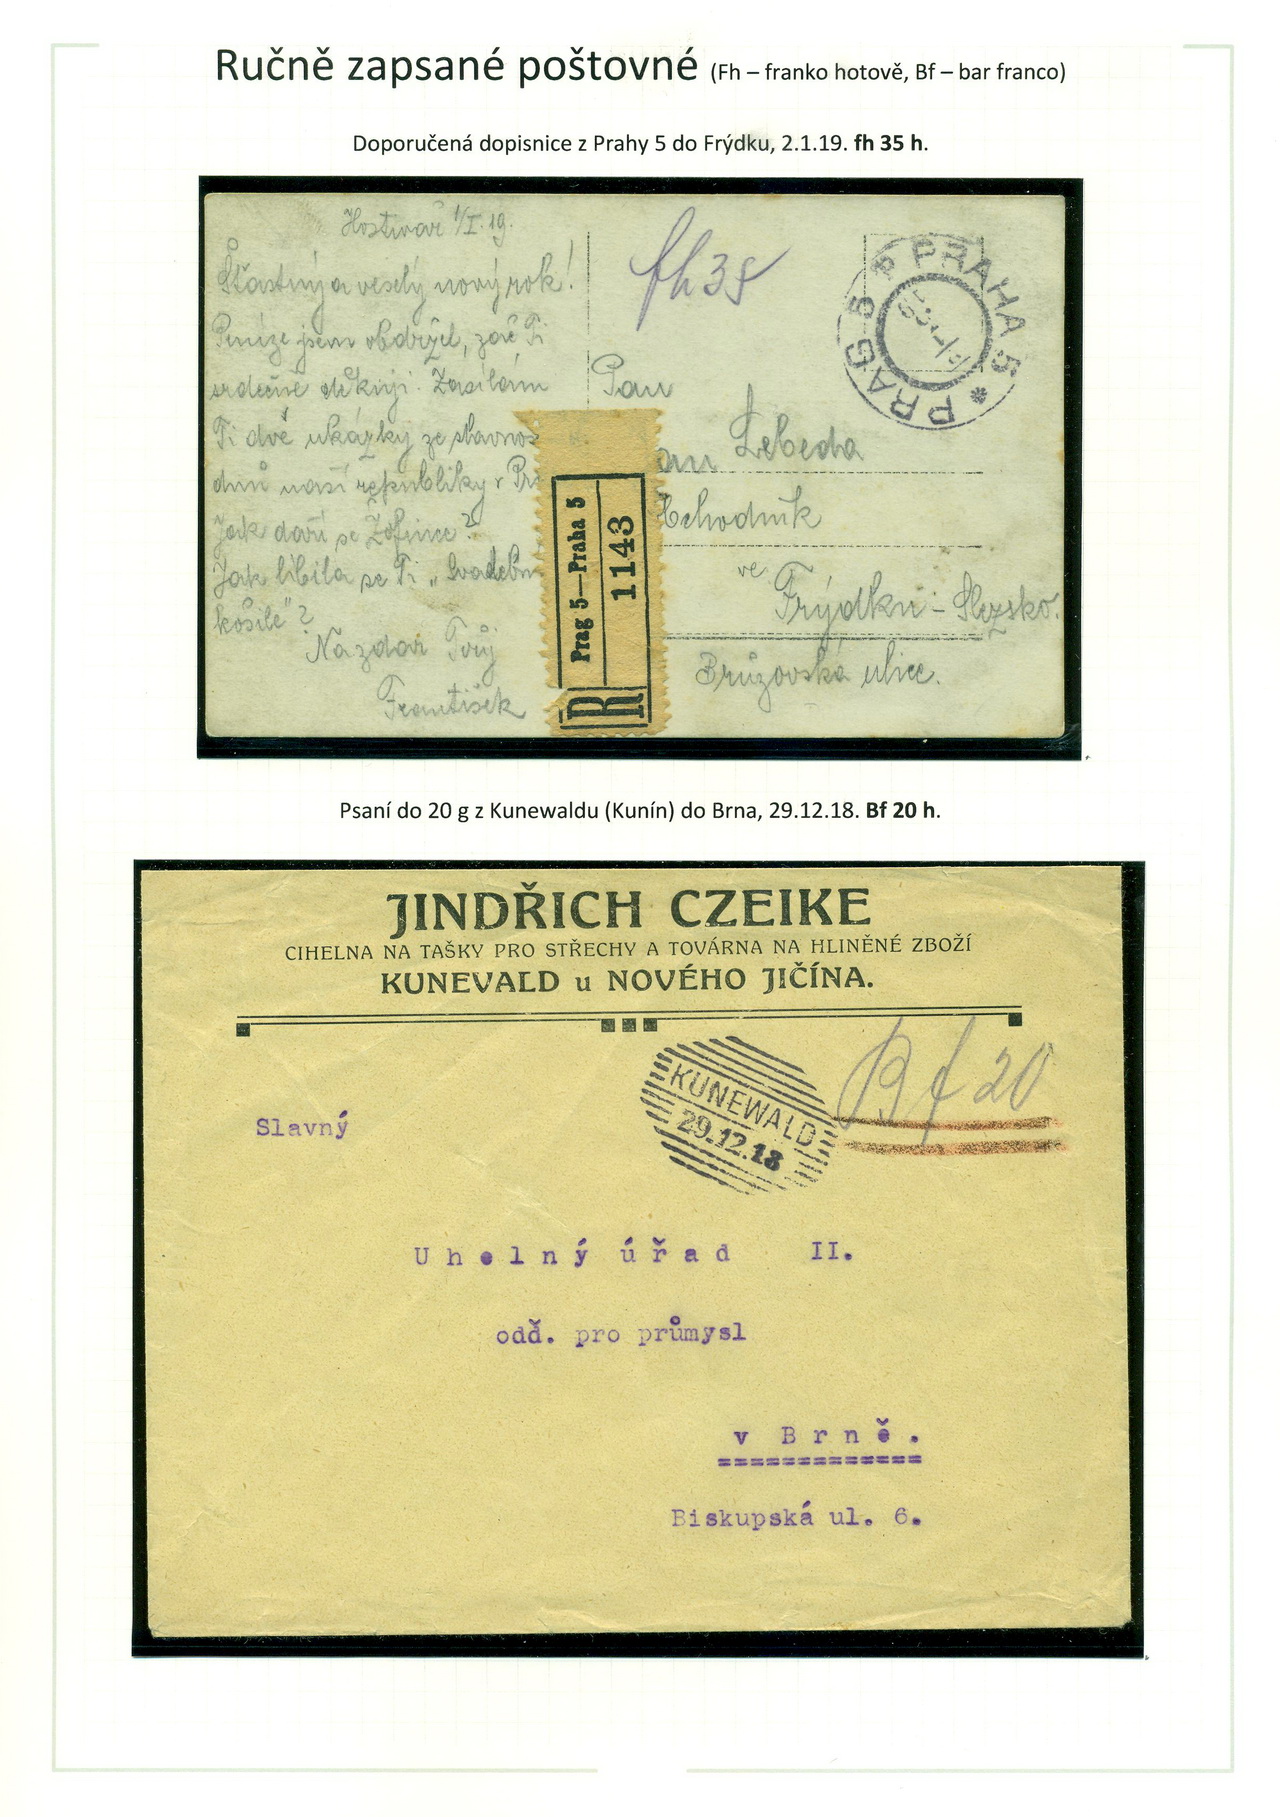 Ručně zapsané poštovné (Fh – franko hotově, Bf – bar franco)
Doporučená dopisnice z Prahy 5 do Frýdku, 2.1.19. fh 35 h.
Hostivař 1/I. 19.
Šťastný a veselý nový rok!
Peníze jsem obdržel, začež Ti
srdečně děkuji. Zasílám
Ti dvě ukázky ze slavnos
dnů naší republiky v Pra
Jak daří se Žofince?
Jak líbila se Ti „Svatební
košile"?
Nazdar Tvůj
František
fh 35
* PRAHA 5 * PRAG 5
Pan
Jan Lebeda
obchodník
ve Frýdku - Slezsko.
Bruzovská ulice.
R
Prag 5—Praha 5
1143
Psaní do 20 g z Kunewaldu (Kunín) do Brna, 29.12.18. Bf 20 h.
JINDŘICH CZEIKE
CIHELNA NA TAŠKY PRO STŘECHY A TOVÁRNA NA HLINĚNÉ ZBOŽÍ
KUNEVALD u NOVÉHO JIČÍNA.
KUNEWALD
29.12.18
Bf 20
Slavný
Uhelný úřad II.
odd. pro průmysl
v Brně.
Biskupská ul. 6.